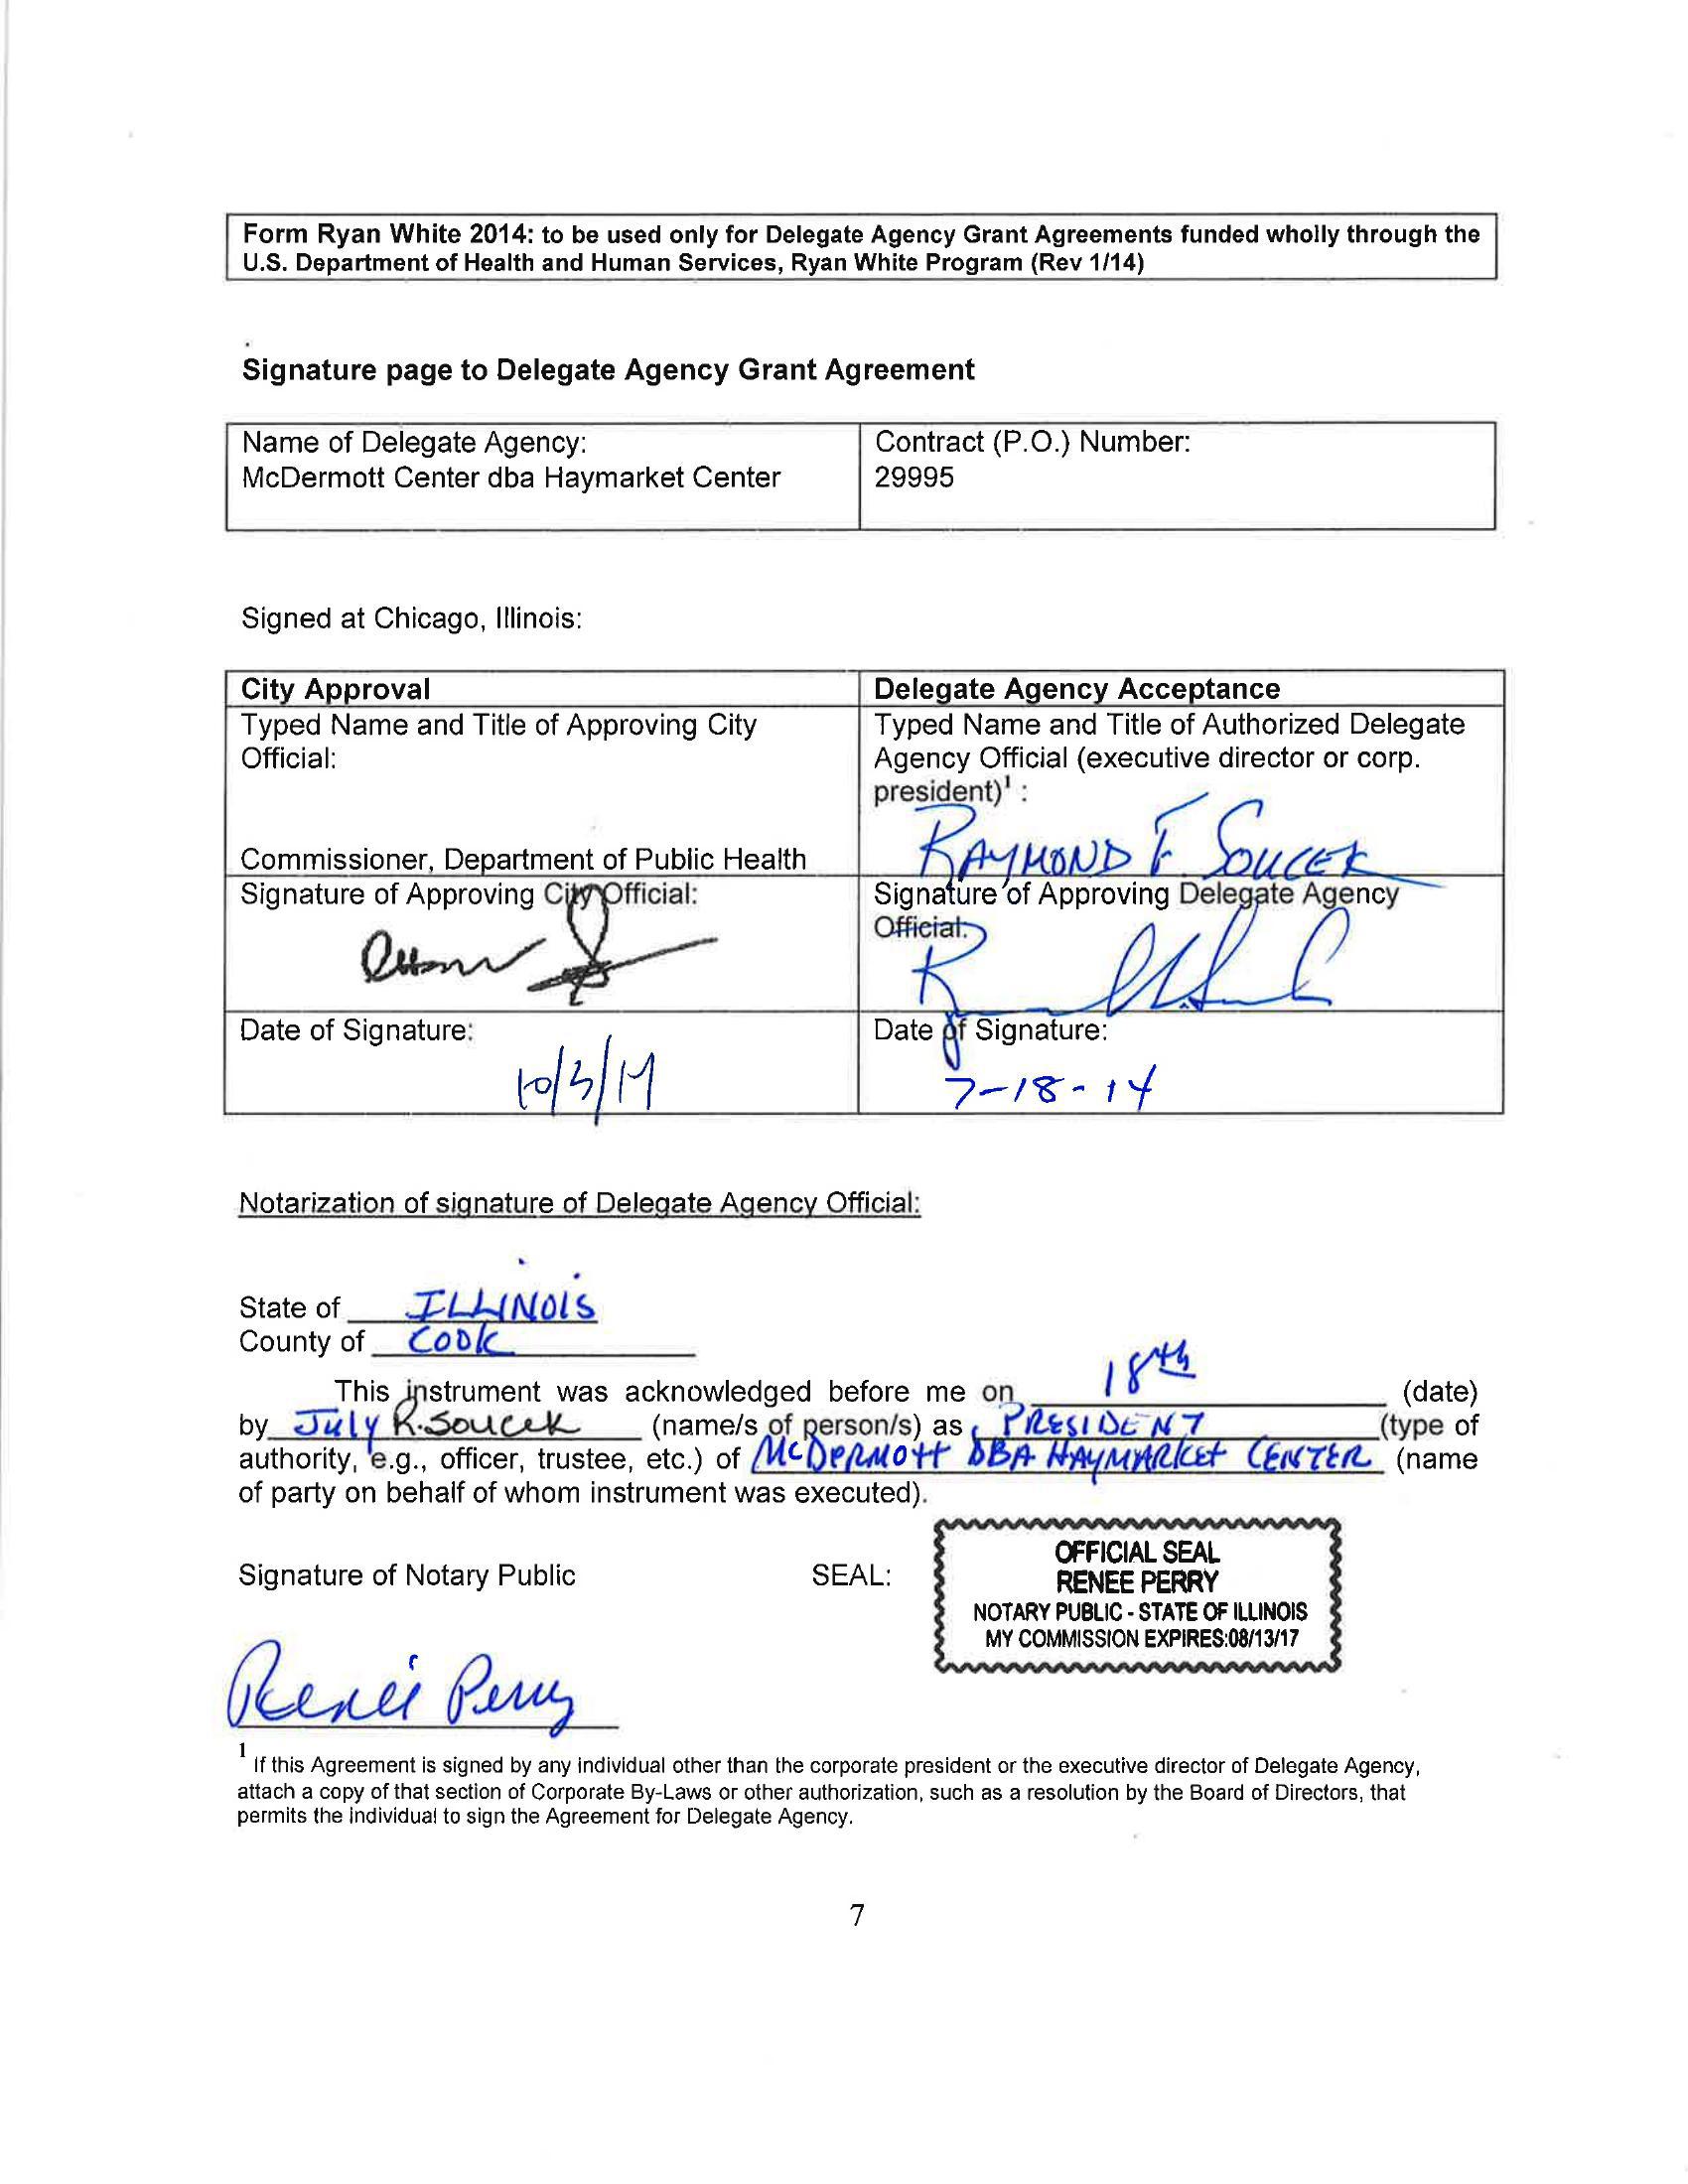 Form Ryan White 2014: to be used only for Delegate Agency Grant Agreements funded wholly through the
U.S. Department of Health and Human Services, Ryan White Program (Rev 1/14)
Signature page to Delegate Agency Grant Agreement
Name of Delegate Agency:
McDermott Center dba Haymarket Center
Contract (P.O.) Number:
29995
Signed at Chicago, Illinois:
City Approval
Typed Name and Title of Approving City
Official:
Commissioner, Department of Public Health
Signature of Approving City Official:
Date of Signature:
10/3/14
Delegate Agency Acceptance
Typed Name and Title of Authorized Delegate
Agency Official (executive director or corp.
president)¹ :
RAYMOND F. SOUCEK
Signature of Approving Delegate Agency
Official:
Date of Signature:
7-18-14
Notarization of signature of Delegate Agency Official:
State of ILLINOIS
County of COOK
This instrument was acknowledged before me on 18th (date)
by July R. Soucek (name/s of person/s) as PRESIDENT (type of
authority, e.g., officer, trustee, etc.) of McDERMOTT DBA HAYMARKET CENTER (name
of party on behalf of whom instrument was executed).
Signature of Notary Public SEAL:
OFFICIAL SEAL
RENEE PERRY
NOTARY PUBLIC - STATE OF ILLINOIS
MY COMMISSION EXPIRES:08/13/17
Renee Perry
¹ If this Agreement is signed by any individual other than the corporate president or the executive director of Delegate Agency,
attach a copy of that section of Corporate By-Laws or other authorization, such as a resolution by the Board of Directors, that
permits the individual to sign the Agreement for Delegate Agency.
7